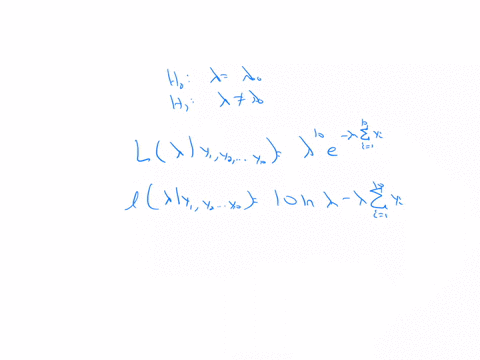 H₀: λ = λ₀
H₁: λ ≠ λ₀
L(λ|y₁, y₂, ... y₁₀) = λ¹⁰ e^{-λ∑_{i=1}^{10} yᵢ}
l(λ|y₁, y₂ ... y₁₀) = 10 ln λ - λ∑_{i=1}^{10} yᵢ